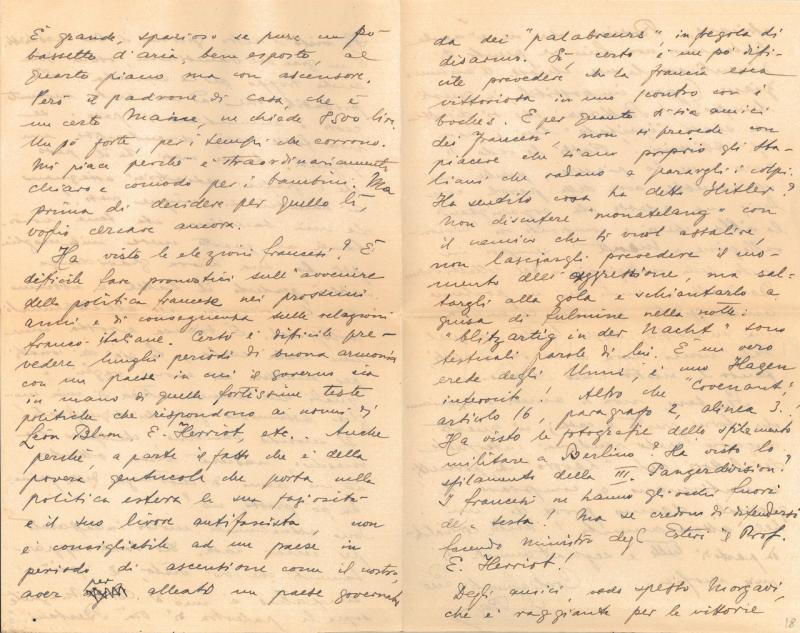 È grande, spazioso se pure un pò
bassetto d'aria, bene esposto, al
quarto piano ma con ascensore.
Però il padrone di casa, che è
un certo Maine, ne chiede 8500 lire.
Un pò forte, per i tempi che corrono.
Mi piace perchè è straordinariamente
chiaro e comodo per i bambini. Ma
prima di decidere per quello lì,
voglio cercare ancora.
Ha visto le elezioni francesi? È
difficile fare pronostici sull'avvenire
della politica francese nei prossimi
anni e di conseguenza sulle relazioni
franco-italiane. Certo è difficile pre-
vedere lunghi periodi di buona armonia
con un paese in cui il governo sia
in mano di quelle fortissime teste
politiche che rispondono ai nomi di
Léon Blum, E. Herriot, etc.. Anche
perchè, a parte il fatto che è della
povera gentucola che porta nella
politica estera la sua faziosità
e il suo livore antifascista, non
è consigliabile ad un paese in
periodo di ascensione come il nostro,
aver per alleato un paese governato
da dei "palabreurs" in fregola di
disarmo. Sì, certo è un pò diffi-
cile prevedere che la Francia esca
vittoriosa in uno scontro con i
boches. E per quanto si sia amici
dei francesi, non si prevede con
piacere che siano proprio gli Ita-
liani che vadano a parargli i colpi.
Ha sentito cosa ha detto Hitler?
Non discutere "monatelang" con
il nemico che ti vuol assalire,
non lasciargli prevedere il mo-
mento dell'aggressione, ma sal-
targli alla gola e schiantarlo a
guisa di fulmine nella notte:
"blitzartig in der Nacht" sono
testuali parole di lui. È un vero
erede degli Unni, è uno Hagen
inferocito! Altro che "Covenant",
articolo 16, paragrafo 2, alinea 3.!
Ha visto le fotografie dello sfilamento
militare a Berlino? Ha visto lo
sfilamento della III. Panzerdivision?
I francesi ne hanno gli occhi fuori
della testa! Ma se credono di difendersi
facendo ministro degli Esteri il Prof.
E. Herriot!
Degli amici, vedo spesso Morgavi,
che è raggiante per le vittorie
18